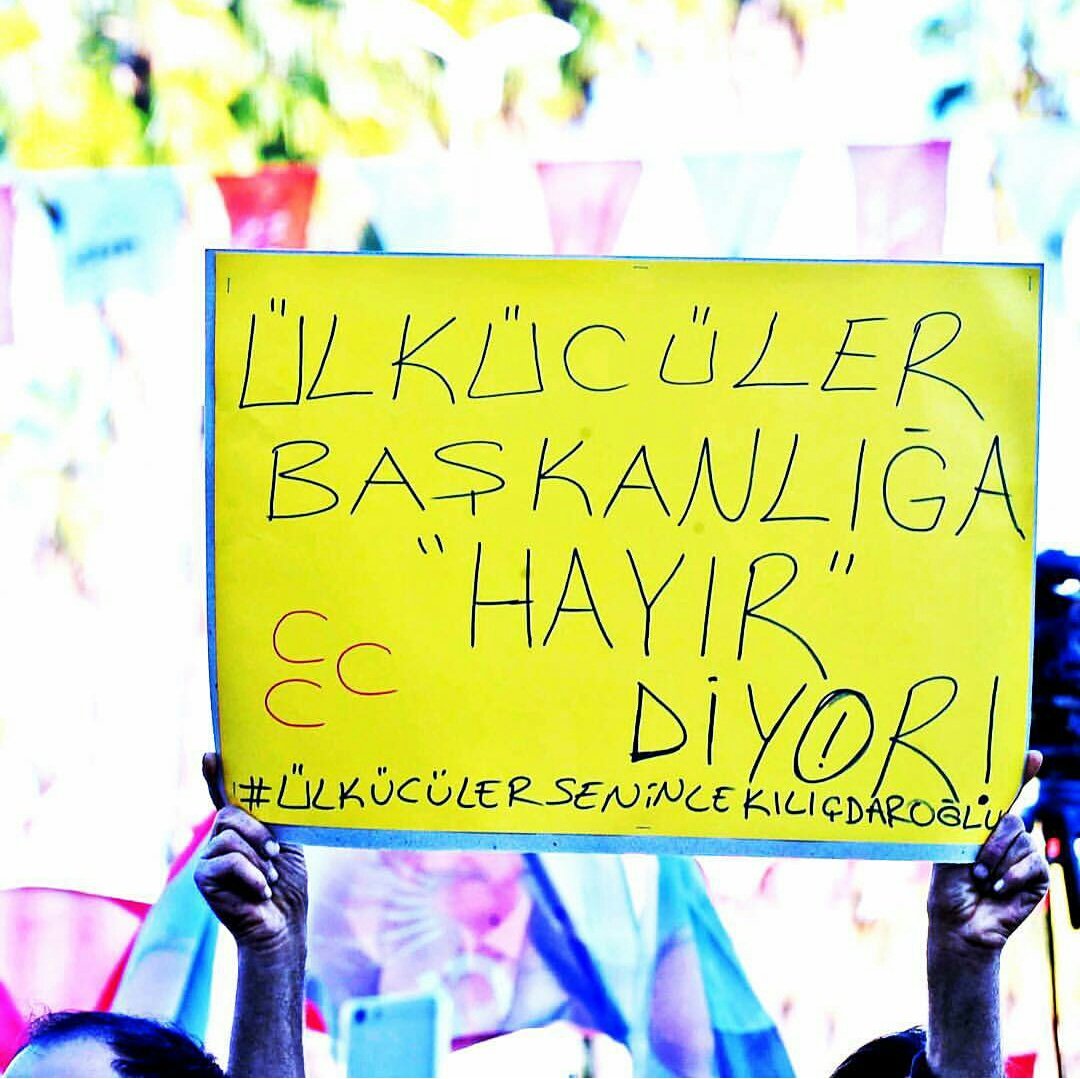 ÜLKÜCÜLER
BAŞKANLIĞA
"HAYIR"
DİYOR!
C
C
C
#ÜLKÜCÜLERSENİNLEKILIÇDAROĞLU